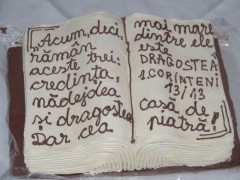 „Acum, deci,
rămân
aceste trei:
credința,
nădejdea
și dragostea
Dar cea
mai mare
dintre ele
este
DRAGOSTEA
1 CORINTENI
13/13
casă de
piatră!